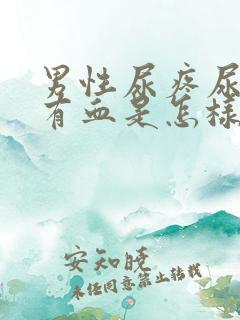 男性尿疼尿
有血是怎样
安知晓
未经同意禁止转载